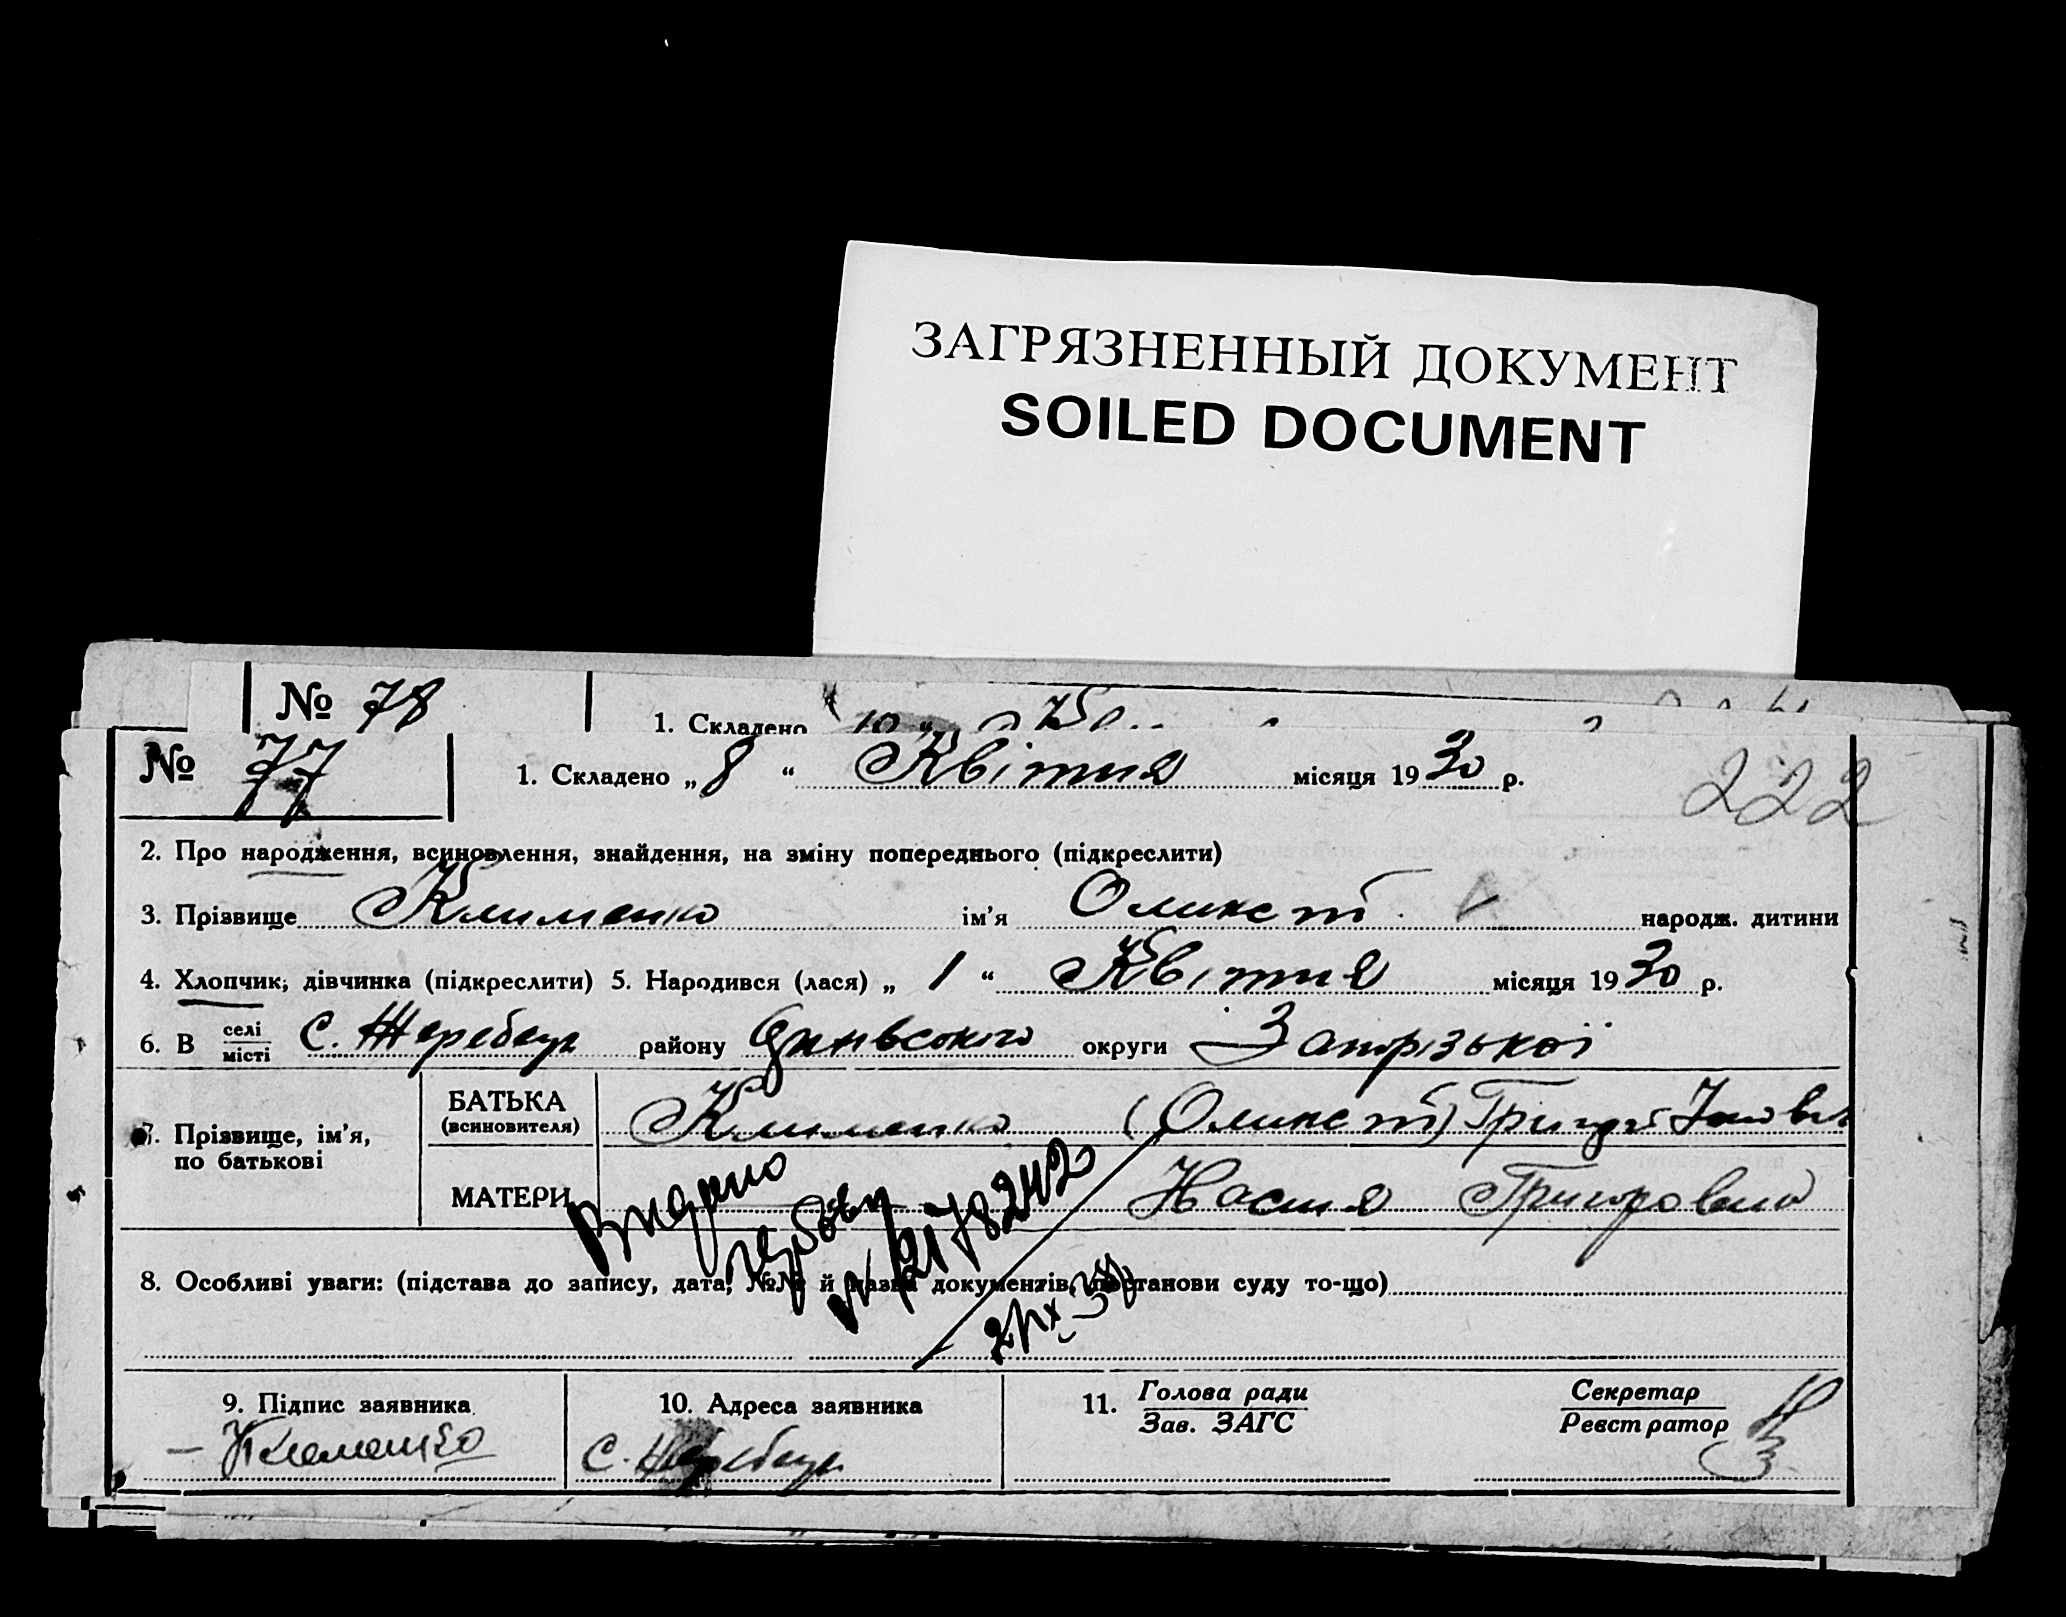 ЗАГРЯЗНЕННЫЙ ДОКУМЕНТ
SOILED DOCUMENT
№ 78
1. Складено 10 “
№ 77
1. Складено „ 8 “ Квітня місяця 1930 р.
222
2. Про народження, всиновлення, знайдення, на зміну попереднього (підкреслити)
3. Прізвище Клименко ім'я народж. дитини
4. Хлопчик, дівчинка (підкреслити) 5. Народився (лася) „ 1 “ Квітня місяця 1930 р.
6. В селі місті С. Жеребець району округи Запорізької
7. Прізвище, ім'я, по батькові
БАТЬКА (всиновителя) Клименко
МАТЕРИ Настя Григоровна
Видано
№ 2178242
8. Особливі уваги: (підстава до запису, дата, №№ й назва документів, постанови суду то-що)
9. Підпис заявника
Клеменко
10. Адреса заявника
С. Жеребець
11. Голова ради
Зав. ЗАГС
Секретар
Реєстратор